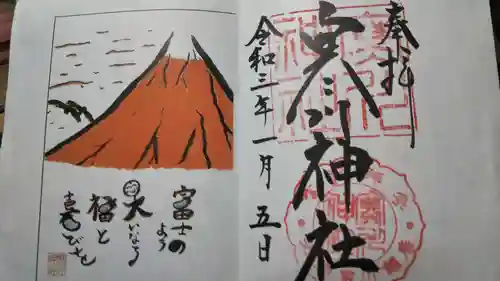 奉拝
寒川神社
令和三年一月五日
富士のよう
大いなる
福と
喜びを